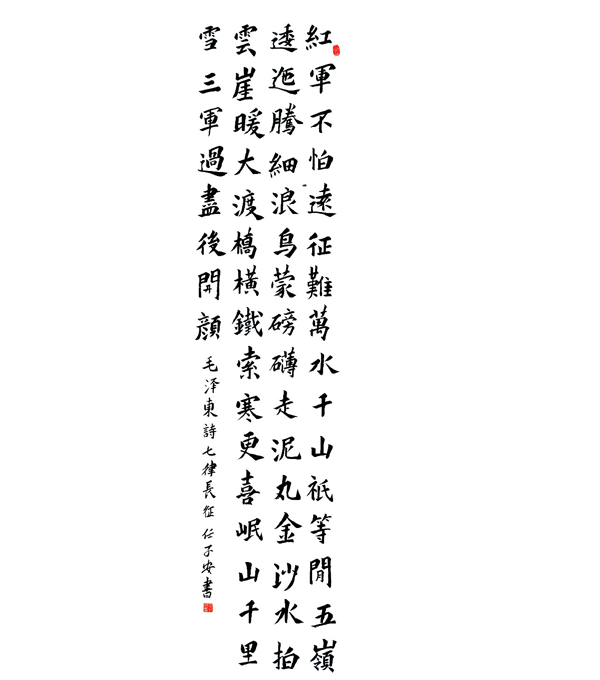 紅軍不怕遠征難萬水千山祇等閒五嶺
逶迤騰細浪鳥蒙磅礴走泥丸金沙水拍
雲崖暖大渡橋橫鐵索寒更喜岷山千里
雪三軍過盡後開顏 毛泽東詩七律長征 仁子安書